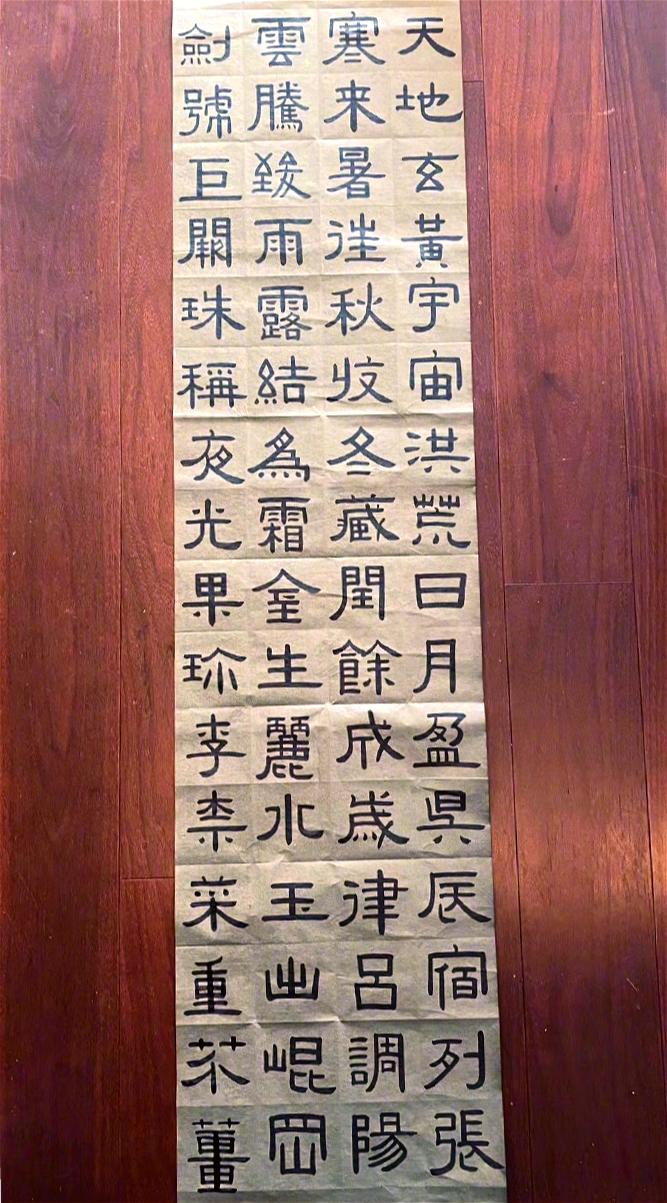 天地玄黃宇宙洪荒日月盈昃辰宿列張
寒来暑往秋收冬藏閏餘成歲律呂調陽
雲騰致雨露結爲霜金生麗水玉出崐岡
劍號巨闕珠稱夜光果珎李柰菜重芥薑